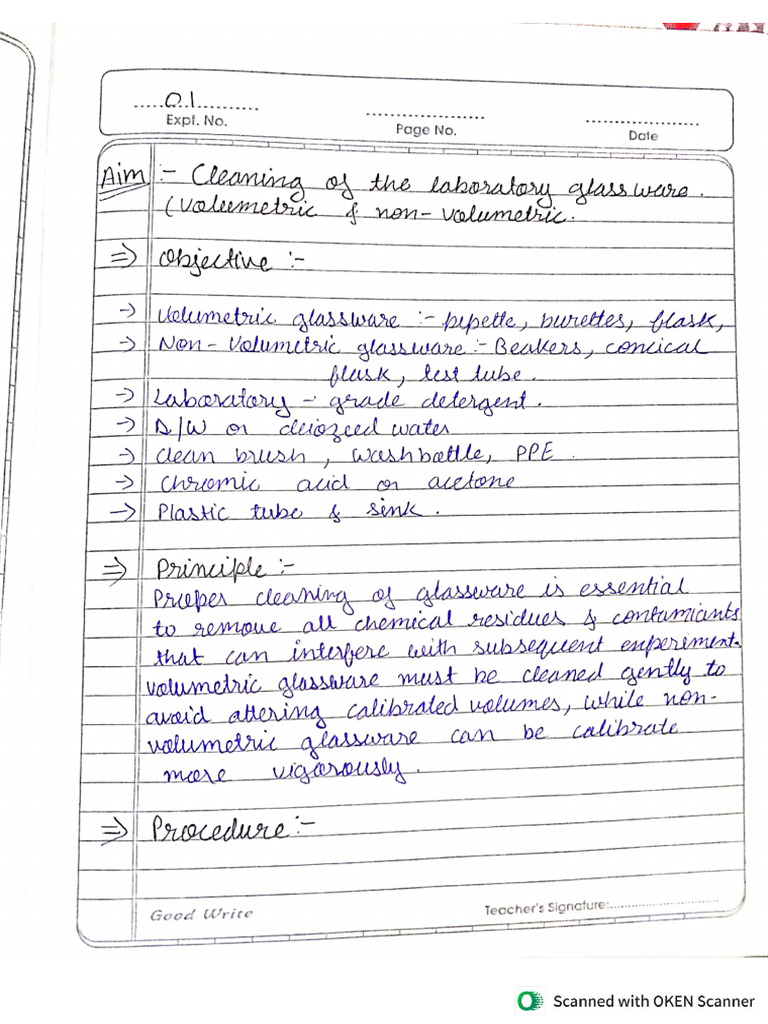 01
Expt. No.
Page No.
Date
Aim :- Cleaning of the laboratory glassware.
(volumetric & non-volumetric.
⇒ Objective :-
→ Volumetric glassware :- pipette, burettes, flask,
→ Non-Volumetric glassware :- Beakers, concical
flask, test tube.
→ Laboratory - grade detergent.
→ D/W or deiozeed water
→ clean brush, washbottle, PPE.
→ Chromic acid or acetone
→ Plastic tube & sink.
⇒ Principle :-
Proper cleaning of glassware is essential
to remove all chemical residues & contamiants
that can interfere with subsequent experiment.
volumetric glassware must be cleaned gently to
avoid altering calibrated volumes, while non-
volumetric glassware can be calibrate
more vigorously.
⇒ Procedure :-
Good Write
Teacher's Signature:
Scanned with OKEN Scanner